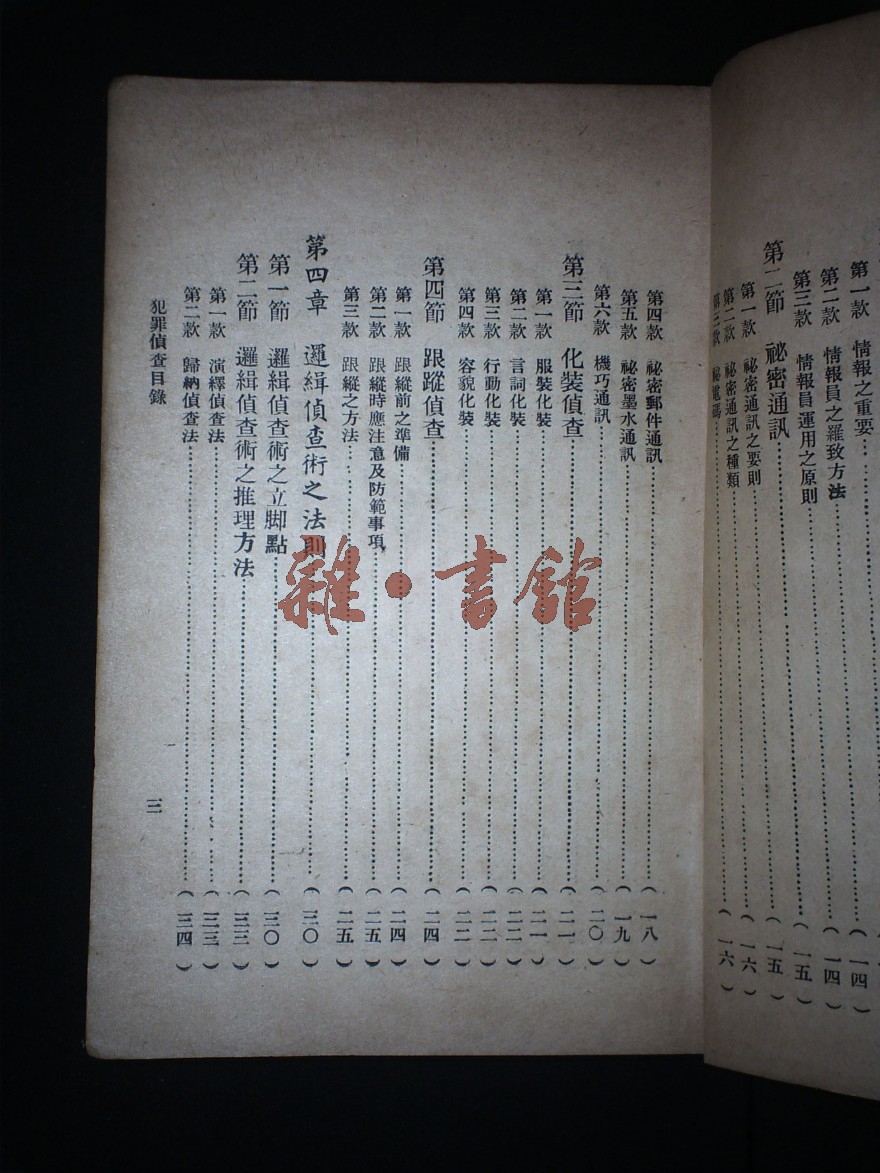 第一款 情報之重要……(一四)
第二款 情報員之羅致方法……(一四)
第三款 情報員運用之原則……(一五)
第二節 祕密通訊……(一五)
第一款 祕密通訊之要則……(一六)
第二款 祕密通訊之種類……(一六)
第三款 祕電碼……
第四款 祕密郵件通訊……(一八)
第五款 祕密墨水通訊……(一九)
第六款 機巧通訊……(二〇)
第三節 化裝偵查……(二一)
第一款 服裝化裝……(二一)
第二款 言詞化裝……(二二)
第三款 行動化裝……(二二)
第四款 容貌化裝……(二二)
第四節 跟蹤偵查……(二四)
第一款 跟縱前之準備……(二四)
第二款 跟縱時應注意及防範事項……(二五)
第三款 跟縱之方法……(二五)
第四章 邏緝偵查術之法則……(三〇)
第一節 邏緝偵查術之立脚點……(三〇)
第二節 邏緝偵查術之推理方法……(三三)
第一款 演繹偵查法……(三三)
第二款 歸納偵查法……(三四)
犯罪偵查目錄
三
雜·書館